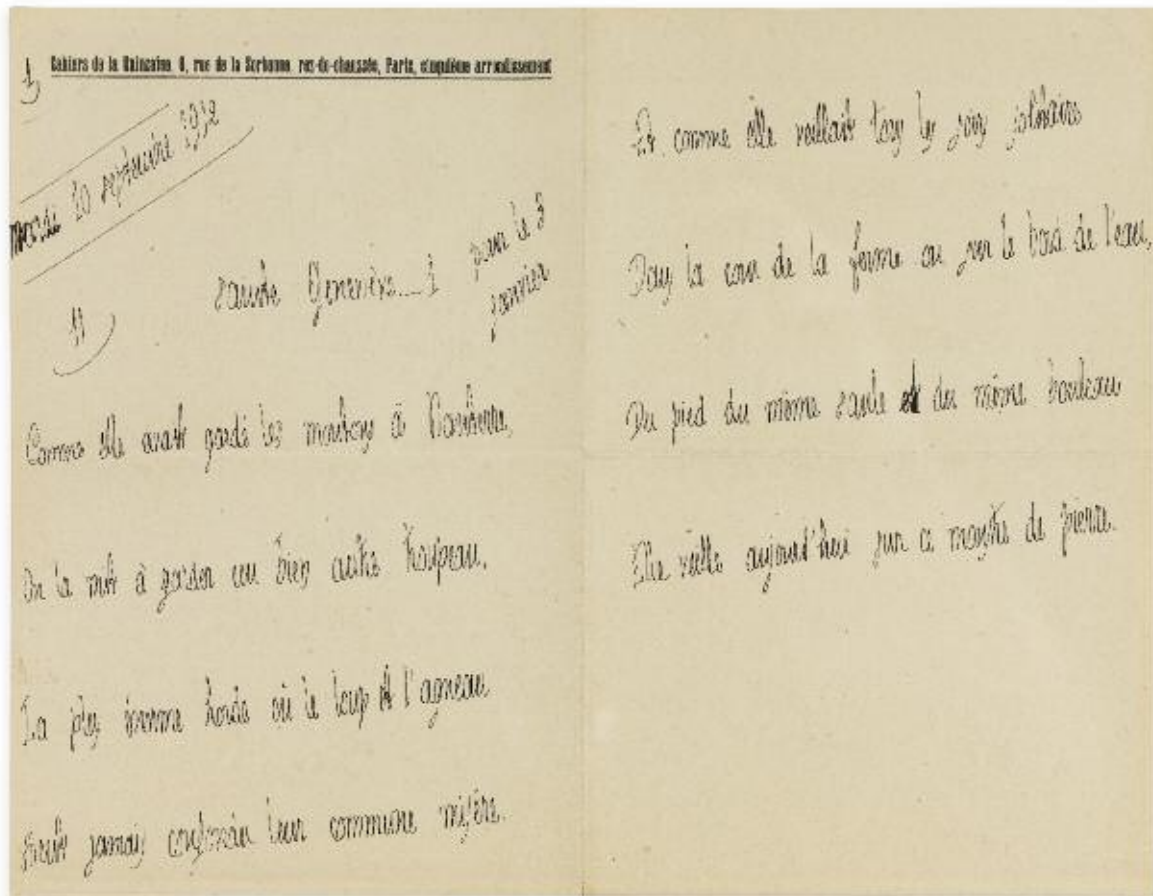 1
Cahiers de la Quinzaine, 8, rue de la Sorbonne, rez-de-chaussée, Paris, cinquième arrondissement
mardi 10 septembre 1912
11
sainte Geneviève___1
pour le 3
janvier
Comme elle avait gardé les moutons à Nanterre,
On la mit à garder un bien autre troupeau,
La plus immense horde où le loup et l'agneau
Aient jamais confondu leur commune misère.
Et comme elle veillait tous les soirs solitaire
Dans la cour de la ferme ou sur le bord de l'eau,
Du pied du même saule et du même bouleau
Elle veille aujourd'hui sur ce monstre de pierre.